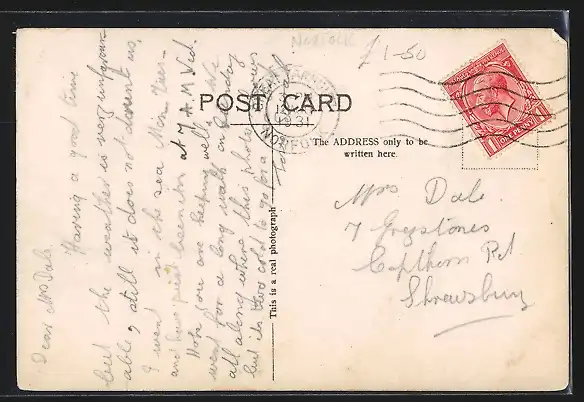 NORFOLK
£1-50
POST CARD
NORFOLK
31
ONE PENNY
The ADDRESS only to be
written here.
This is a real photograph
Mrs Dale
7 Greystones
Copthorn Rd
Shrewsbury
Dear Mrs Dale
Having a good time
but the weather is very unfavour-
able, still it does not daunt us,
I went in the sea Mon Tues-
and have just been in at 7 A.M Wed.
Hope you are keeping well. We
went for a long walk on Sunday
all along where this photo shows
but its two cold to go for a